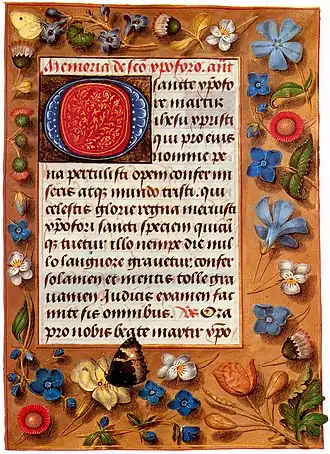 Memoria de sco ypoforo. añt
O sancte ypofo
re martir
ihesu ypristi
qui pro eius
nomine pe
na pertulisti opem confer mi
seris atq; mundo tristi. qui
celestis glorie regna meruisti
ypofori sancti speciem quicu
q; tuetur illo nempe die nul
lo languore gravetur, confer
solamen et mentis tolle gra
vamen. Judicis examen fac
mite sis omnibus. Vs Ora
pro nobis beate martir ypo